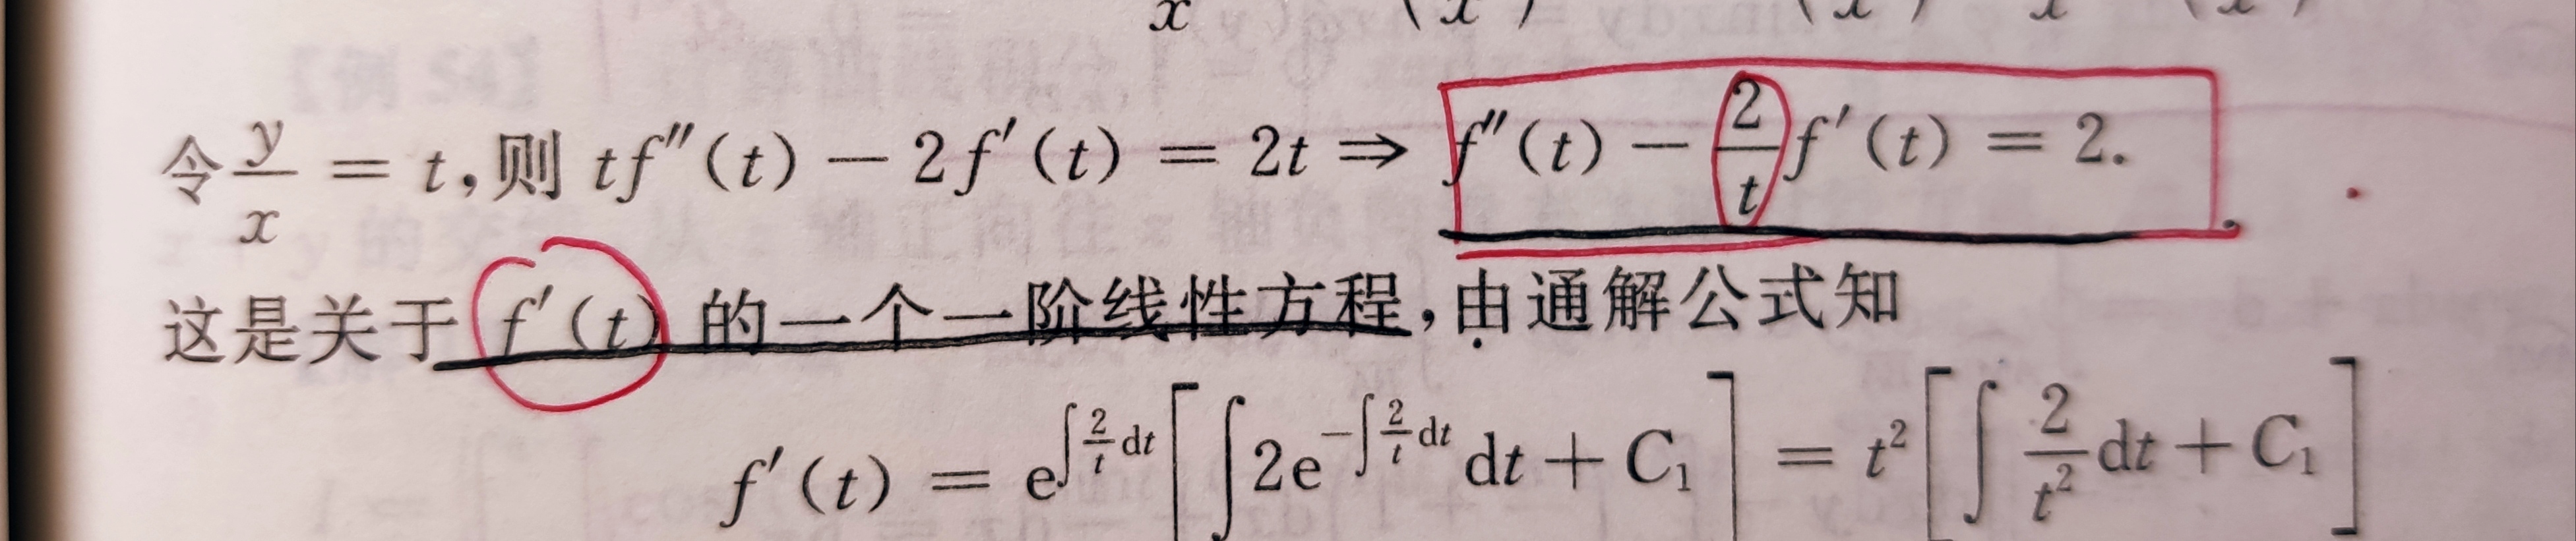 x (x) (x) x (x)
令 y/x = t,则 tf″(t) − 2f′(t) = 2t ⇒ f″(t) − 2/t f′(t) = 2.
这是关于 f′(t) 的一个一阶线性方程,由通解公式知
f′(t) = e^{∫2/t dt}[∫2e^{−∫2/t dt}dt + C₁] = t²[∫2/t² dt + C₁]